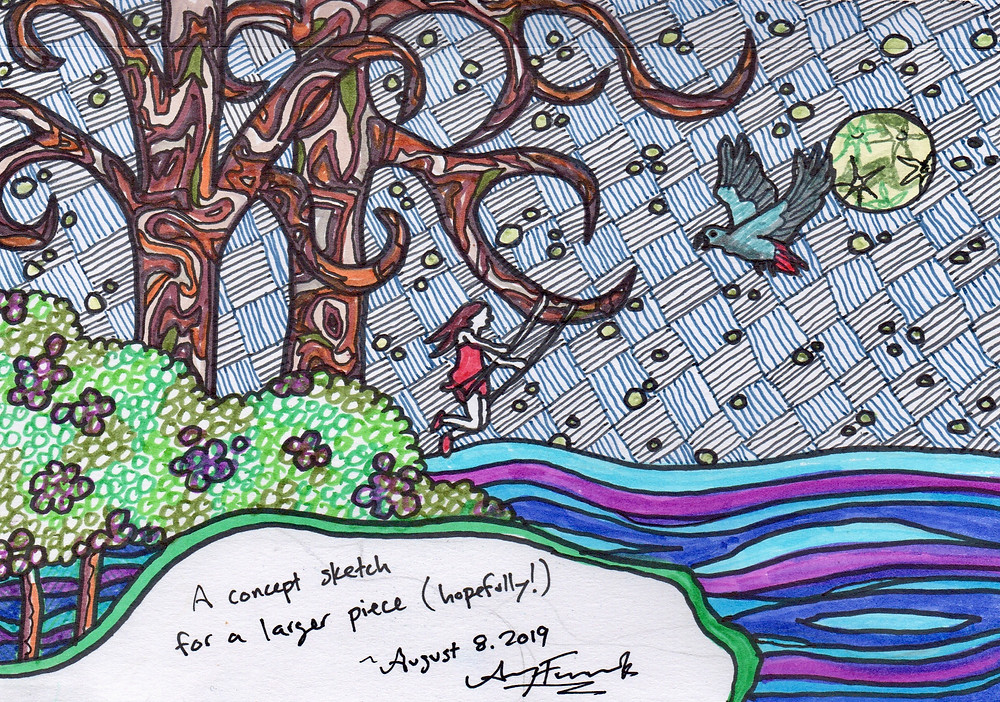 A concept sketch
for a larger piece (hopefully!)
~August 8.2019